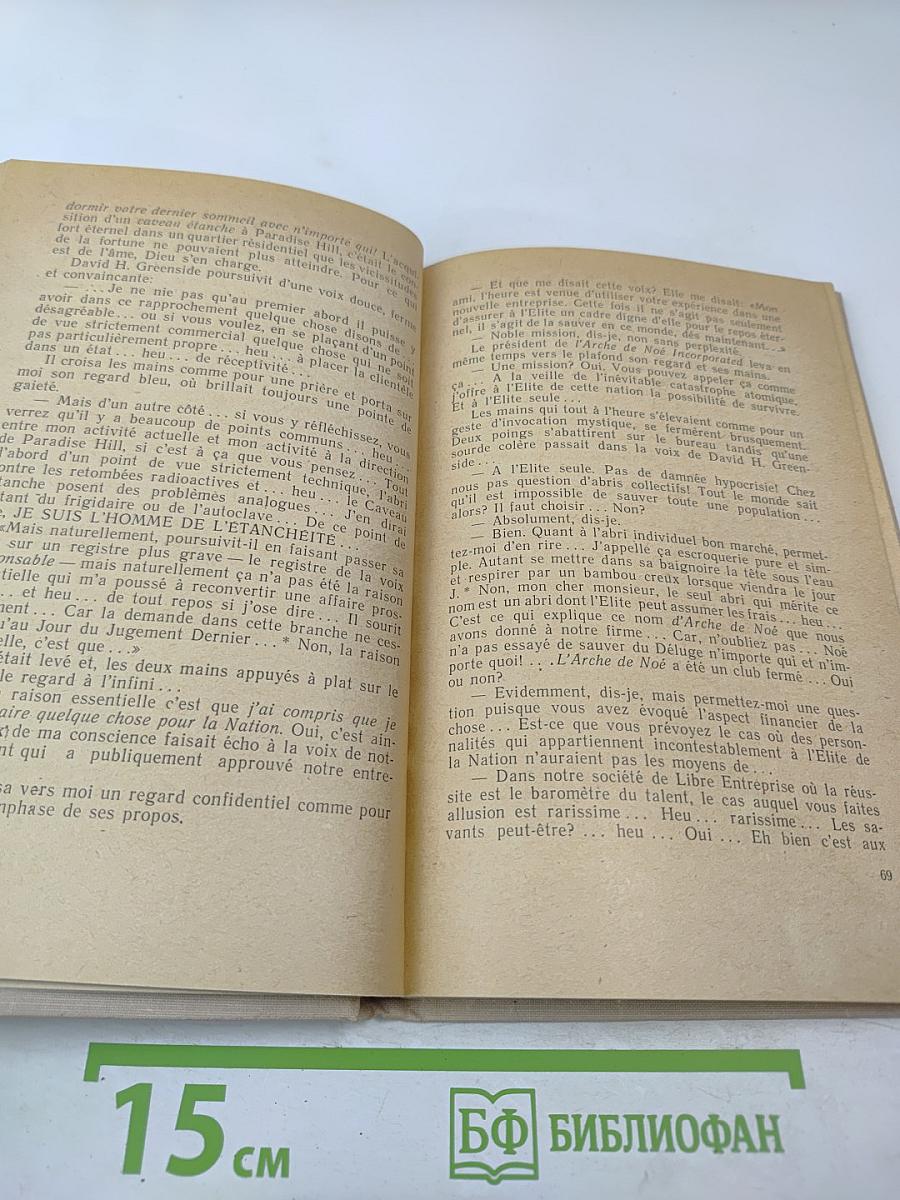 dormir votre dernier sommeil avec n'importe qui! L'acqui-
sition d'un caveau étanche à Paradise Hill, c'était le con-
fort éternel dans un quartier résidentiel que les vicissitudes
de la fortune ne pouvaient plus atteindre. Pour ce qui
est de l'âme, Dieu s'en charge.
David H. Greenside poursuivit d'une voix douce, ferme
et convaincante:
— ... Je ne nie pas qu'au premier abord il puisse y
avoir dans ce rapprochement quelque chose disons de ...
désagréable... ou si vous voulez, en se plaçant d'un point
de vue strictement commercial quelque chose qui ne soit
pas particulièrement propre ... heu ... à placer la clientèle
dans un état ... heu ... de réceptivité ...
Il croisa les mains comme pour une prière et porta sur
moi son regard bleu, où brillait toujours une pointe de
gaieté.
— Mais d'un autre côté ... si vous y réfléchissez, vous
verrez qu'il y a beaucoup de points communs ... heu ...
entre mon activité actuelle et mon activité à la direction
de Paradise Hill, si c'est à ça que vous pensez ... Tout
d'abord d'un point de vue strictement technique, l'abri
contre les retombées radioactives et ... heu ... le Caveau
tanche posent des problèmes analogues ... J'en dirai
tant du frigidaire ou de l'autoclave ... De ce point de
e, JE SUIS L'HOMME DE L'ÉTANCHÉITÉ ...
«Mais naturellement, poursuivit-il en faisant passer sa
sur un registre plus grave — le registre de la voix
onsable — mais naturellement ça n'a pas été la raison
tielle qui m'a poussé à reconvertir une affaire pros-
... et heu ... de tout repos si j'ose dire ... Il sourit
ment ... Car la demande dans cette branche ne ces-
u'au Jour du Jugement Dernier ... * Non, la raison
elle, c'est que ...»
était levé et, les deux mains appuyés à plat sur le
le regard à l'infini ...
raison essentielle c'est que j'ai compris que je
aire quelque chose pour la Nation. Oui, c'est ain-
x de ma conscience faisait écho à la voix de not-
nt qui a publiquement approuvé notre entre-
sa vers moi un regard confidentiel comme pour
mphase de ses propos.
— Et que me disait cette voix? Elle me disait: «Mon
ami, l'heure est venue d'utiliser votre expérience dans une
nouvelle entreprise. Cette fois il ne s'agit pas seulement
d'assurer à l'Elite un cadre digne d'elle pour le repos éter-
nel, il s'agit de la sauver en ce monde, dès maintenant...»
— Noble mission, dis-je, non sans perplexité.
Le président de l'Arche de Noé Incorporated leva en
même temps vers le plafond son regard et ses mains.
— Une mission? Oui. Vous pouvez appeler ça comme
ça ... A la veille de l'inévitable catastrophe atomique,
j'offre à l'Elite de cette nation la possibilité de survivre.
Et à l'Elite seule ...
Les mains qui tout à l'heure s'élevaient comme pour un
geste d'invocation mystique, se fermèrent brusquement.
Deux poings s'abattirent sur le bureau tandis qu'une
sourde colère passait dans la voix de David H. Green-
side ...
— A l'Elite seule. Pas de damnée hypocrisie! Chez
nous pas question d'abris collectifs! Tout le monde sait
qu'il est impossible de sauver toute une population ...
alors? Il faut choisir ... Non?
— Absolument, dis-je.
— Bien. Quant à l'abri individuel bon marché, permet-
tez-moi d'en rire ... J'appelle ça escroquerie pure et sim-
ple. Autant se mettre dans sa baignoire la tête sous l'eau
et respirer par un bambou creux lorsque viendra le jour
J. * Non, mon cher monsieur, le seul abri qui mérite ce
nom est un abri dont l'Elite peut assumer les frais ... heu ...
C'est ce qui explique ce nom d'Arche de Noé que nous
avons donné à notre firme ... Car, n'oubliez pas ... Noé
n'a pas essayé de sauver du Déluge n'importe qui et n'im-
porte quoi! ... L'Arche de Noé a été un club fermé ... Oui
ou non?
— Evidemment, dis-je, mais permettez-moi une ques-
tion puisque vous avez évoqué l'aspect financier de la
chose ... Est-ce que vous prévoyez le cas où des person-
nalités qui appartiennent incontestablement à l'Elite de
la Nation n'auraient pas les moyens de ...
— Dans notre société de Libre Entreprise où la réus-
site est le baromètre du talent, le cas auquel vous faites
allusion est rarissime ... Heu ... rarissime ... Les sa-
vants peut-être? ... heu ... Oui ... Eh bien c'est aux
69
15 см
БФ БИБЛИОФАН